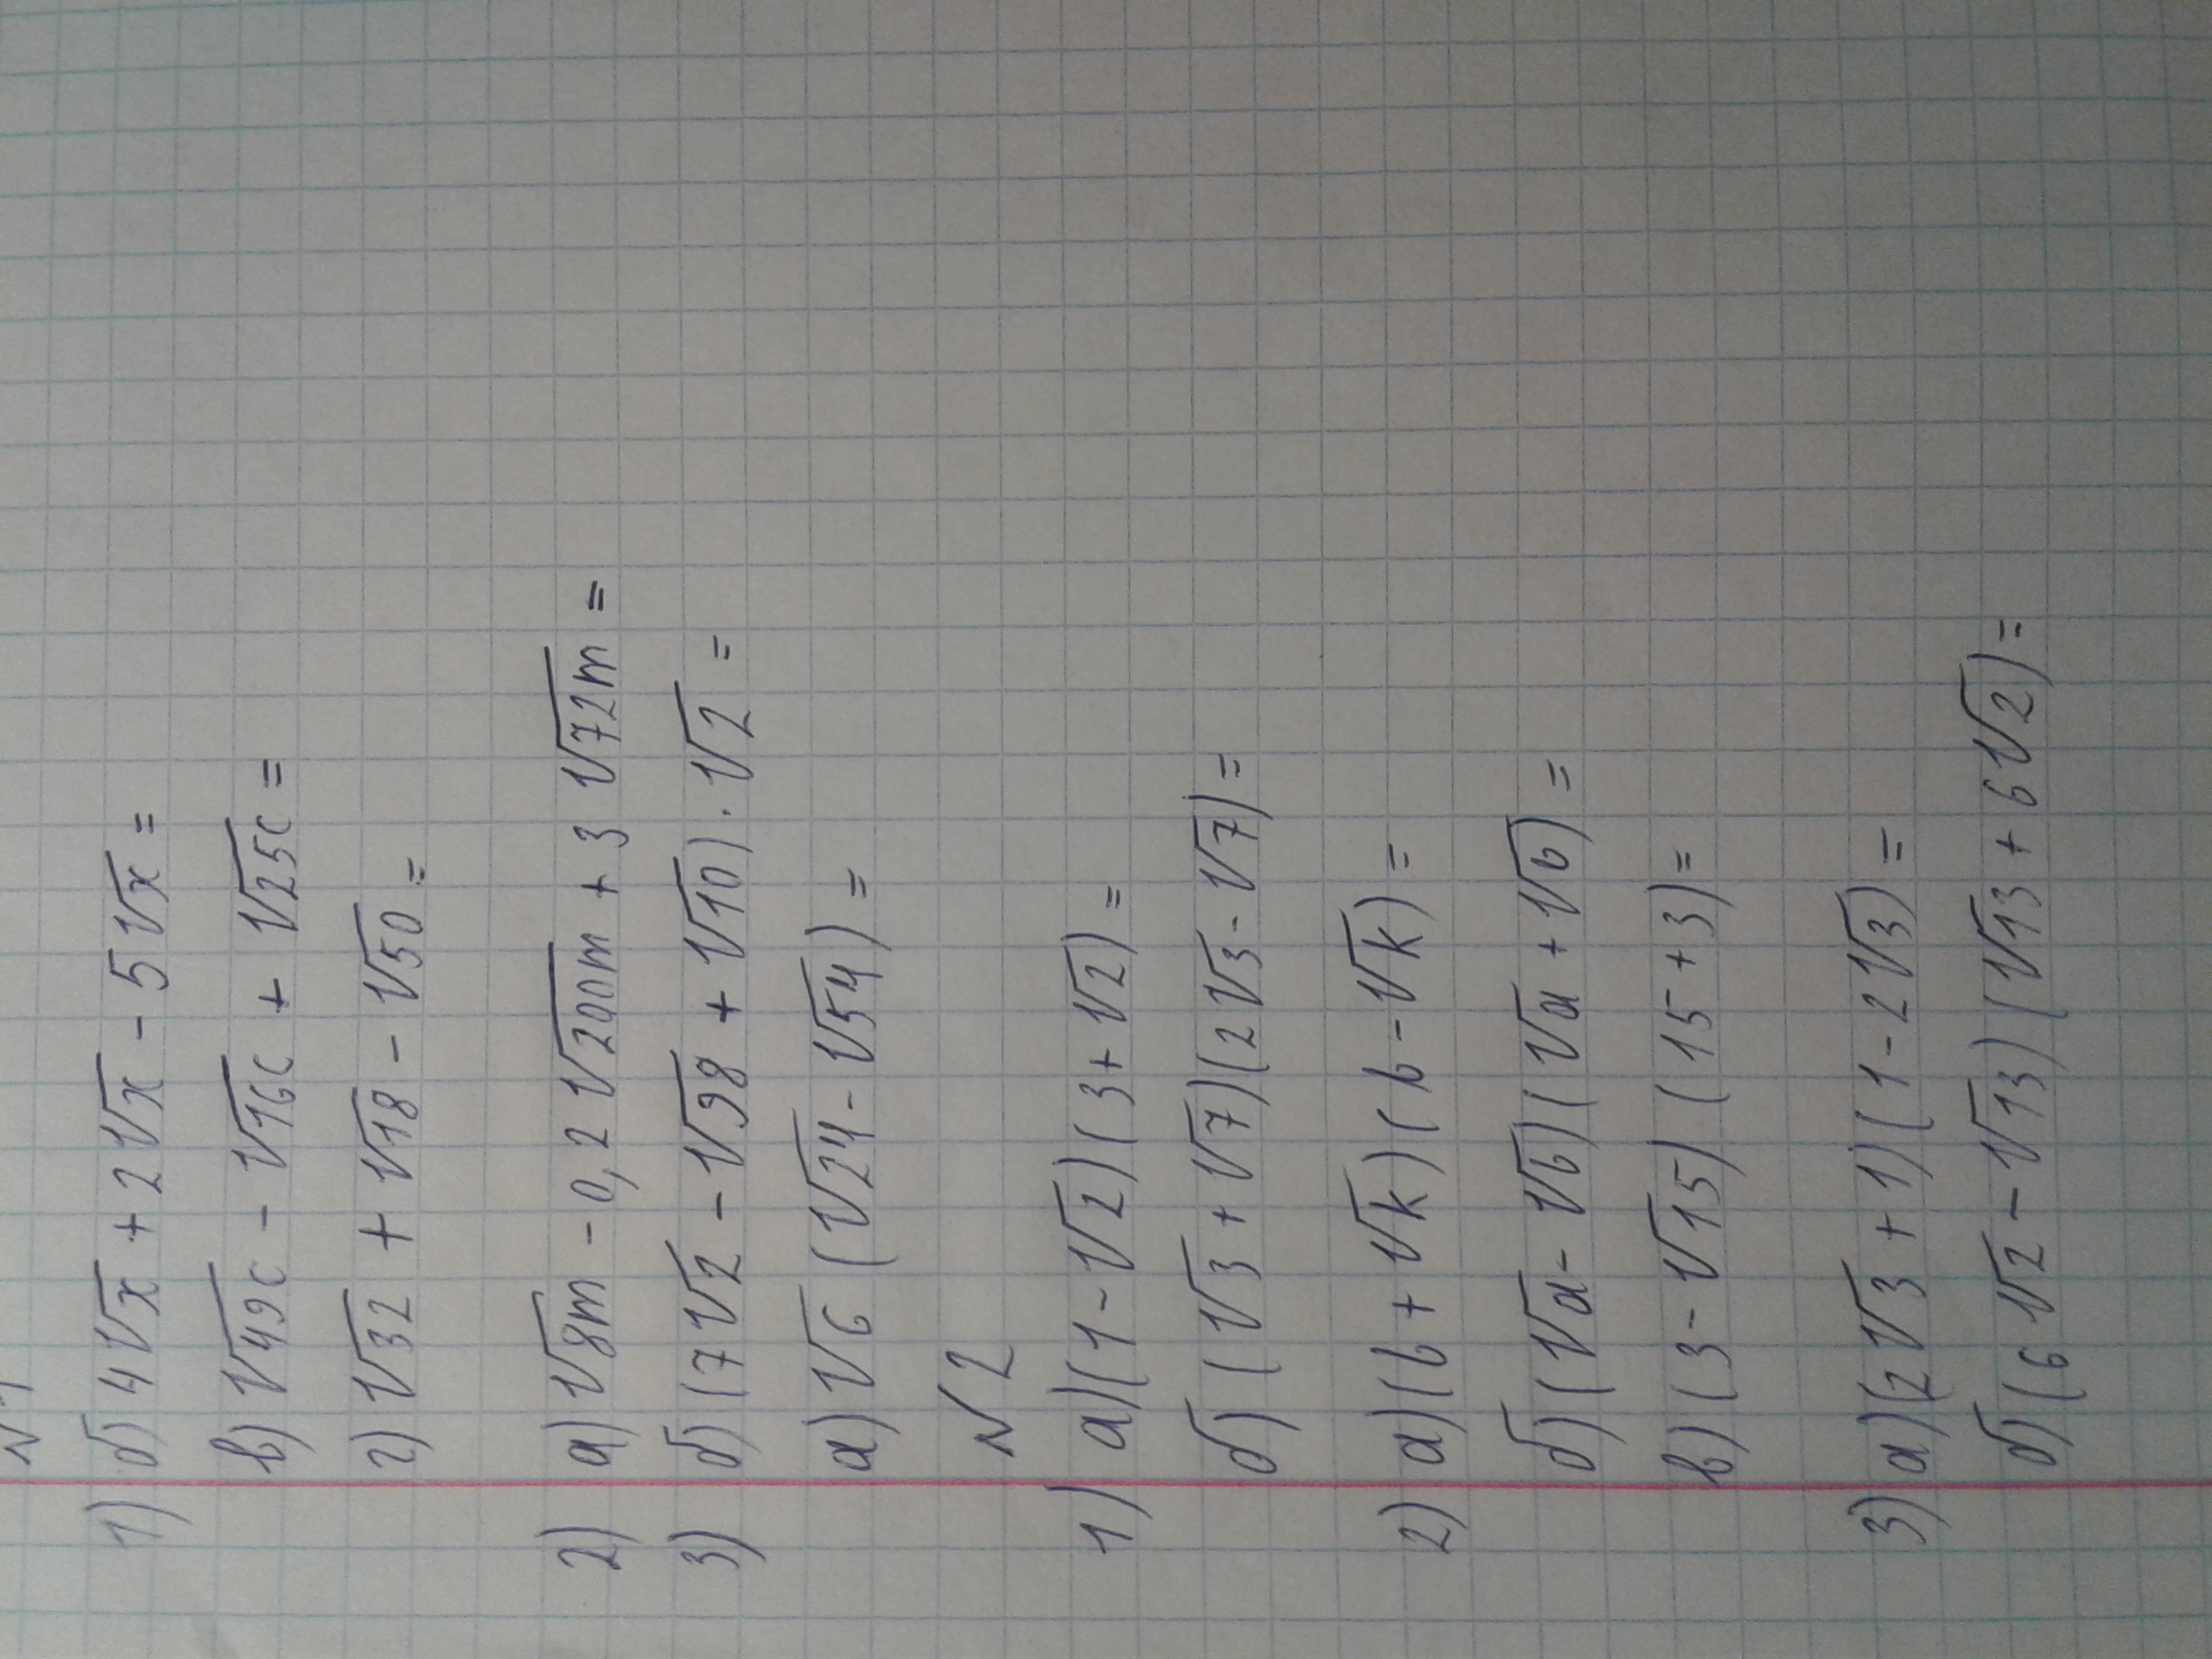 1) б) 4√x + 2√x - 5√x =
в) √49c - √16c + √25c =
г) √32 + √18 - √50 =
2) а) √8m - 0,2√200m + 3√72m =
3) б) (7√2 - √98 + √10) · √2 =
а) √6 (√24 - √54) =
N 2
1) а) (1 - √2)(3 + √2) =
б) (√3 + √7)(2√3 - √7) =
2) а) (b + √k)(b - √k) =
б) (√a - √b)(√a + √b) =
в) (3 - √15)(15 + 3) =
3) а) (2√3 + 1)(1 - 2√3) =
б) (6√2 - √13)(√13 + 6√2) =